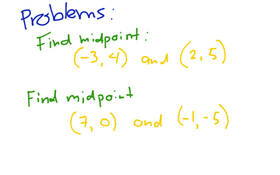 Problems:
Find midpoint:
(-3, 4) and (2, 5)
Find midpoint
(7, 0) and (-1, -5)